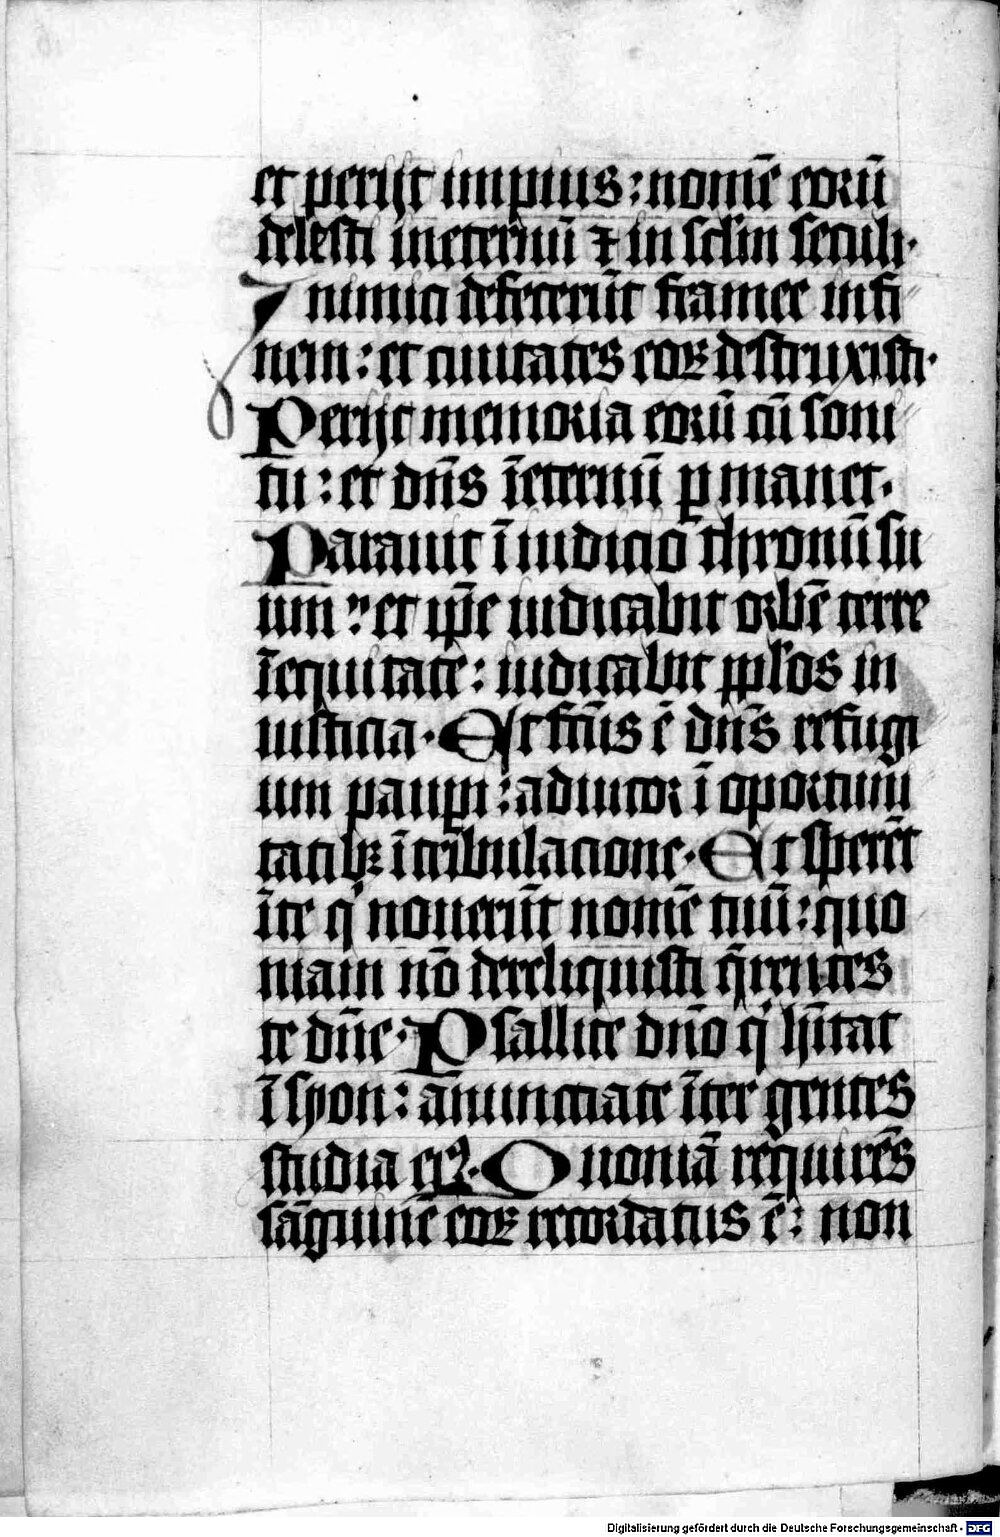 et perijt impius : nomē eorū
delesti ineternū ⁊ in sclm seculi ·
Inimici defecerūt framee in fi
nem : et ciuitates eoꝝ destruxisti ·
Perijt memoria eorū cū soni
tu : et dn̄s īeternū ꝑmanet ·
Parauit ī iudicio thronū su
um : et ip̄e iudicabit orbē terre
īequitate : iudicabit pplos in
iusticia · Et fcūs ē dn̄s refugi
um pauꝑi : adiutor ī oportuni
tatibꝫ ītribulacione · Et sperēt
īte qͥ nouerūt nomē tuū : quo
niam nō dereliquisti q̄rentes
te dn̄e · Psallite dn̄o qͥ hītat
ī syon : ānunctiate īter gentes
studia eiꝰ · Quoniā requirēs
sāguinē eoꝝ recordatus ē : non
Digitalisierung gefördert durch die Deutsche Forschungsgemeinschaft - DFG